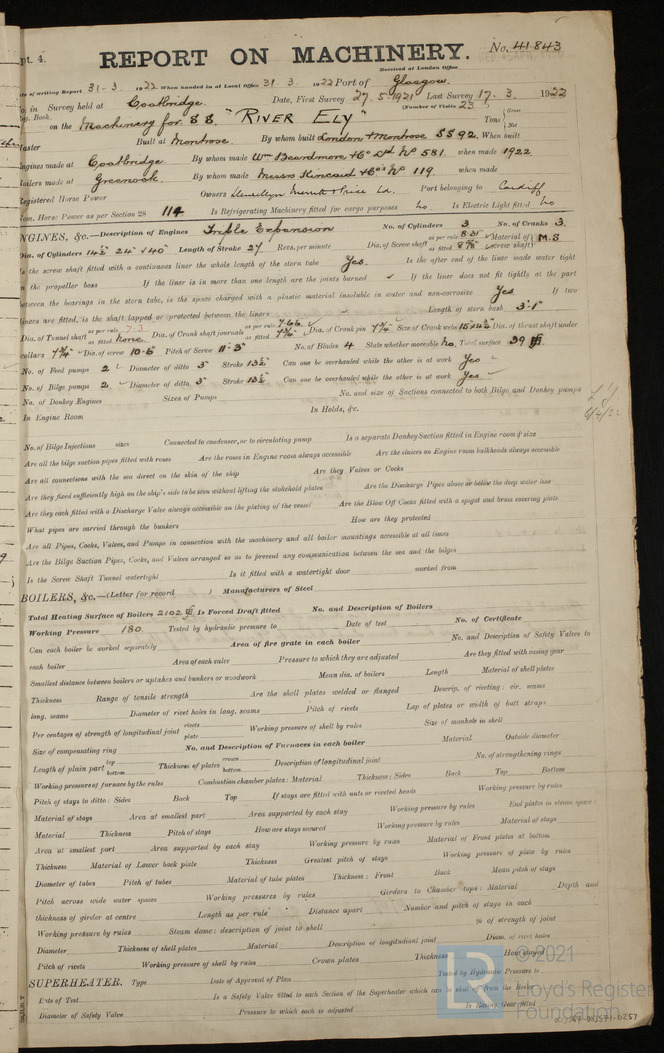 pt. 4.
REPORT ON MACHINERY.
No. 41843
Received at London Office
of writing Report 31-3. 1922 When handed in at Local Office 31. 3. 1922 Port of Glasgow.
in Survey held at Coatbridge. Date, First Survey 27.5.1921 Last Survey 17.3. 1922
Book. (Number of Visits 23)
on the Machinery for S S. "RIVER ELY" Tons Gross Net
Master Built at Montrose. By whom built London & Montrose SS 92. When built
Engines made at Coatbridge. By whom made Wm Beardmore & Co Ltd No 581. when made 1922
Boilers made at Greenock. By whom made Messrs Kincaid & Co No 119. when made
Registered Horse Power Owners Llewellyn Merrett & Price Ld. Port belonging to Cardiff
Nom. Horse Power as per Section 28 114 Is Refrigerating Machinery fitted for cargo purposes no. Is Electric Light fitted no
ENGINES, &c.—Description of Engines Triple Expansion No. of Cylinders 3 No. of Cranks 3.
Dia. of Cylinders 14½ 24" & 40" Length of Stroke 27 Revs. per minute Dia. of Screw shaft as per rule 8.31" as fitted 8 5/8" Material of screw shaft M.S.
Is the screw shaft fitted with a continuous liner the whole length of the stern tube Yes. Is the after end of the liner made water tight
in the propeller boss If the liner is in more than one length are the joints burned If the liner does not fit tightly at the part
between the bearings in the stern tube, is the space charged with a plastic material insoluble in water and non-corrosive Yes If two
liners are fitted, is the shaft lapped or protected between the liners Length of stern bush 3'-1"
Dia. of Tunnel shaft as per rule 7.3 as fitted none Dia. of Crank shaft journals as per rule 7.66 as fitted 7¾" Dia. of Crank pin 7¾" Size of Crank webs 15"x4¾ Dia. of thrust shaft under
collars 7¾" Dia. of screw 10-6 Pitch of Screw 11-3" No. of Blades 4 State whether moveable no. Total surface 39
No. of Feed pumps 2 Diameter of ditto 3" Stroke 13½ Can one be overhauled while the other is at work Yes
No. of Bilge pumps 2 Diameter of ditto 3" Stroke 13½" Can one be overhauled while the other is at work Yes
No. of Donkey Engines Sizes of Pumps No. and size of Suctions connected to both Bilge and Donkey pumps
In Engine Room In Holds, &c.
No. of Bilge Injections sizes Connected to condenser, or to circulating pump Is a separate Donkey Suction fitted in Engine room & size
Are all the bilge suction pipes fitted with roses Are the roses in Engine room always accessible Are the sluices on Engine room bulkheads always accessible
Are all connections with the sea direct on the skin of the ship Are they Valves or Cocks
Are they fixed sufficiently high on the ship's side to be seen without lifting the stokehold plates Are the Discharge Pipes above or below the deep water line
Are they each fitted with a Discharge Valve always accessible on the plating of the vessel Are the Blow Off Cocks fitted with a spigot and brass covering plate
What pipes are carried through the bunkers How are they protected
Are all Pipes, Cocks, Valves, and Pumps in connection with the machinery and all boiler mountings accessible at all times
Are the Bilge Suction Pipes, Cocks, and Valves arranged so as to prevent any communication between the sea and the bilges
Is the Screw Shaft Tunnel watertight Is it fitted with a watertight door worked from
BOILERS, &c.—(Letter for record ) Manufacturers of Steel
Total Heating Surface of Boilers 2102 Is Forced Draft fitted No. and Description of Boilers
Working Pressure 180 Tested by hydraulic pressure to Date of test No. of Certificate
Can each boiler be worked separately Area of fire grate in each boiler No. and Description of Safety Valves to
each boiler Area of each valve Pressure to which they are adjusted Are they fitted with easing gear
Smallest distance between boilers or uptakes and bunkers or woodwork Mean dia. of boilers Length Material of shell plates
Thickness Range of tensile strength Are the shell plates welded or flanged Descrip. of riveting: cir. seams
long. seams Diameter of rivet holes in long. seams Pitch of rivets Lap of plates or width of butt straps
Per centages of strength of longitudinal joint rivets plate Working pressure of shell by rules Size of manhole in shell
Size of compensating ring No. and Description of Furnaces in each boiler Material Outside diameter
Length of plain part top bottom Thickness of plates crown bottom Description of longitudinal joint No. of strengthening rings
Working pressure of furnace by the rules Combustion chamber plates: Material Thickness: Sides Back Top Bottom
Pitch of stays to ditto: Sides Back Top If stays are fitted with nuts or riveted heads Working pressure by rules
Material of stays Area at smallest part Area supported by each stay Working pressure by rules End plates in steam space:
Material Thickness Pitch of stays How are stays secured Working pressure by rules Material of stays
Area at smallest part Area supported by each stay Working pressure by rules Material of Front plates at bottom
Thickness Material of Lower back plate Thickness Greatest pitch of stays Working pressure of plate by rules
Diameter of tubes Pitch of tubes Material of tube plates Thickness: Front Back Mean pitch of stays
Pitch across wide water spaces Working pressures by rules Girders to Chamber tops: Material Depth and
thickness of girder at centre Length as per rule Distance apart Number and pitch of stays in each
Working pressure by rules Steam dome: description of joint to shell % of strength of joint
Diameter Thickness of shell plates Material Description of longitudinal joint Diam. of rivet holes
Pitch of rivets Working pressure of shell by rules Crown plates Thickness How stayed
SUPERHEATER. Type Date of Approval of Plan Tested by Hydraulic Pressure to
Date of Test Is a Safety Valve fitted to each Section of the Superheater which can be shut off from the Boiler
Diameter of Safety Valve Pressure to which each is adjusted Is Easing Gear fitted
© 2021
LR
Lloyd's Register
Foundation